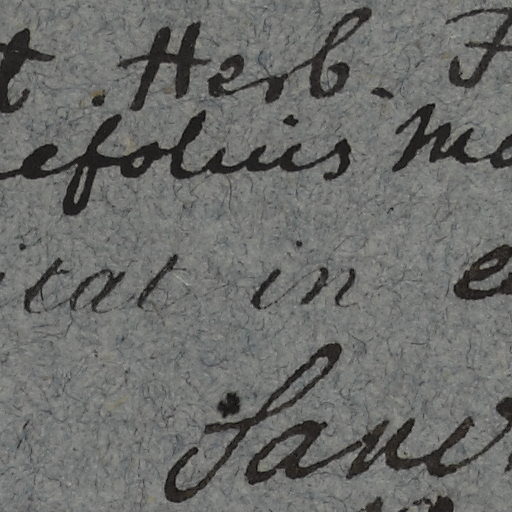 t. Herb. F
efolius Me
itat in e
Sand